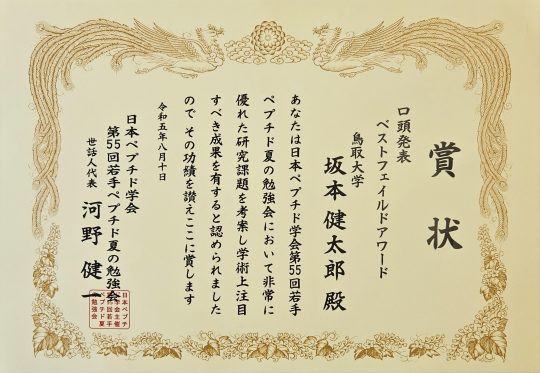 賞状
口頭発表
ベストフェイルドアワード
鳥取大学
坂本 健太郎 殿
あなたは日本ペプチド学会第55回若手
ペプチド夏の勉強会において非常に
優れた研究課題を考案し学術上注目
すべき成果を有すると認められました
ので その功績を讃えここに賞します
令和五年八月十日
日本ペプチド学会
第55回若手ペプチド夏の勉強会
世話人代表 河野 健一
日本ペプチ
ド学会主催
第55回若手
ペプチド夏
の勉強会